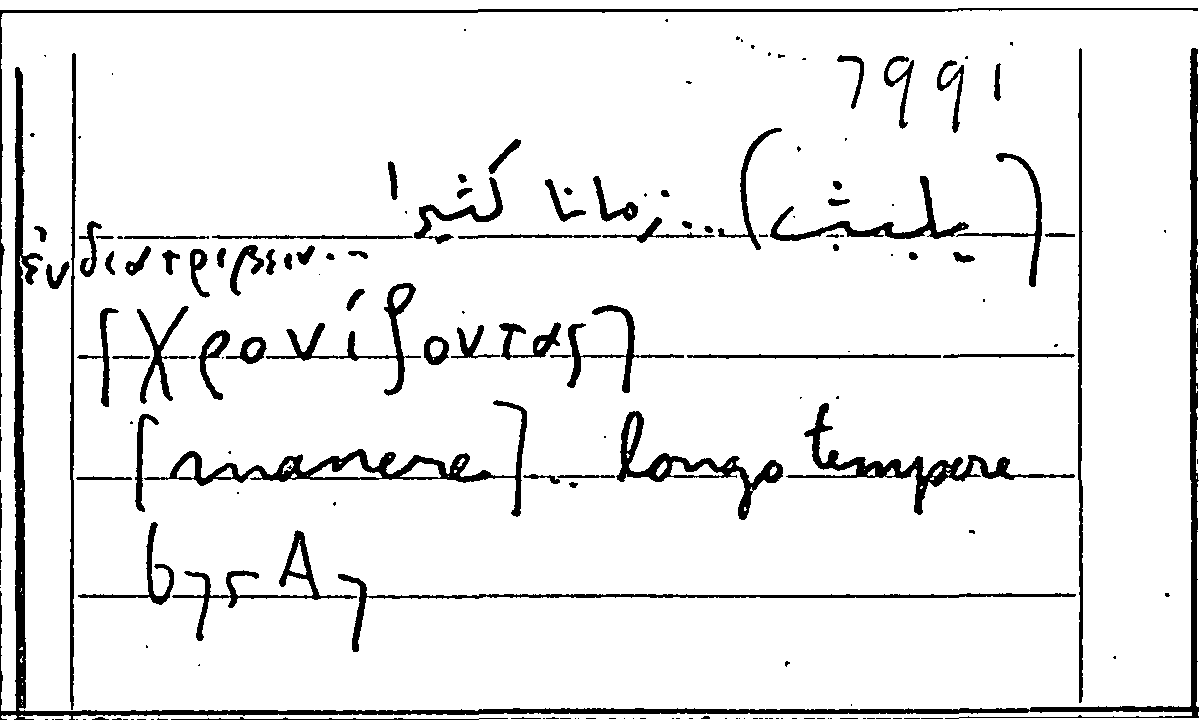 7991
(يلبث)... زمانا كثيرا
ἐνδιατριβειν...
[χρονίζοντας]
[manere].. longo tempore
675A7